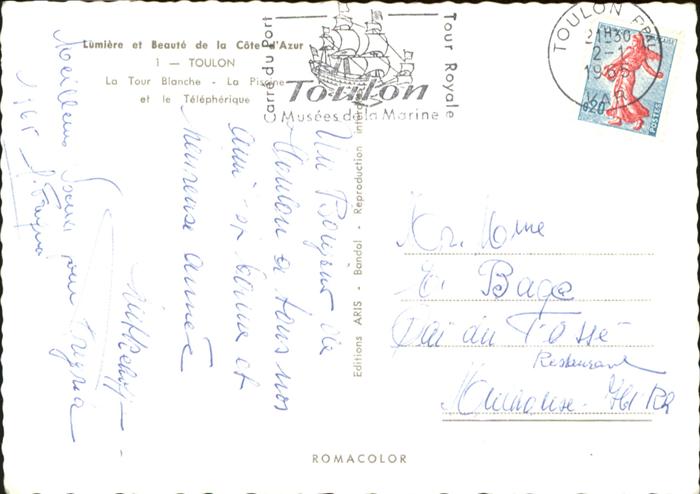 Lumière et Beauté de la Côte d'Azur
1 — TOULON
La Tour Blanche - La Piscine
et le Téléphérique
Carré du Port
Toulon
Musées de la Marine
Tour Royale
TOULON PPAL
21H30
2-1
1965
VAR
0,20
POSTES
Un Bonjour de
Toulon a tous nos
amis - et bonne et
heureuse année
Meilleurs pour
1965
Editions ARIS - Bandol - Reproduction
Mr. Mme
E. Bage
Quai du Fossé
Restaurant
Mulhouse - Ht Rh
ROMACOLOR